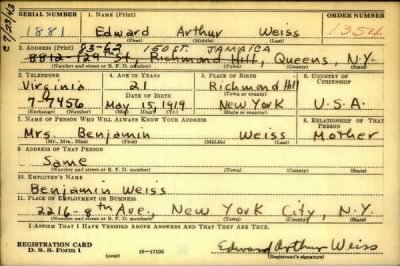 SERIAL NUMBER 1. NAME (Print) ORDER NUMBER
1881 Edward Arthur Weiss 1354
(First) (Middle) (Last)
2. ADDRESS (Print) 83-62 150 ST. JAMAICA
8812-129 St, Richmond Hill, Queens, N.Y.
(Number and street or R. F. D. number) (Town) (County) (State)
3. TELEPHONE 4. AGE IN YEARS 5. PLACE OF BIRTH 6. COUNTRY OF CITIZENSHIP
Virginia 21 Richmond Hill
DATE OF BIRTH (Town or county)
7-7456 May 15, 1919 New York U.S.A.
(Exchange) (Number) (Mo.) (Day) (Yr.) (State or country)
7. NAME OF PERSON WHO WILL ALWAYS KNOW YOUR ADDRESS 8. RELATIONSHIP OF THAT PERSON
Mrs. Benjamin Weiss Mother
(Mr., Mrs., Miss) (First) (Middle) (Last)
9. ADDRESS OF THAT PERSON
Same
(Number and street or R. F. D. number) (Town) (County) (State)
10. EMPLOYER'S NAME
Benjamin Weiss
11. PLACE OF EMPLOYMENT OR BUSINESS
2216-8th Ave., New York City, N.Y.
(Number and street or R. F. D. number) (Town) (County) (State)
I AFFIRM THAT I HAVE VERIFIED ABOVE ANSWERS AND THAT THEY ARE TRUE.
REGISTRATION CARD
D. S. S. Form 1 (over) 16—17105 Edward Arthur Weiss
(Registrant's signature)